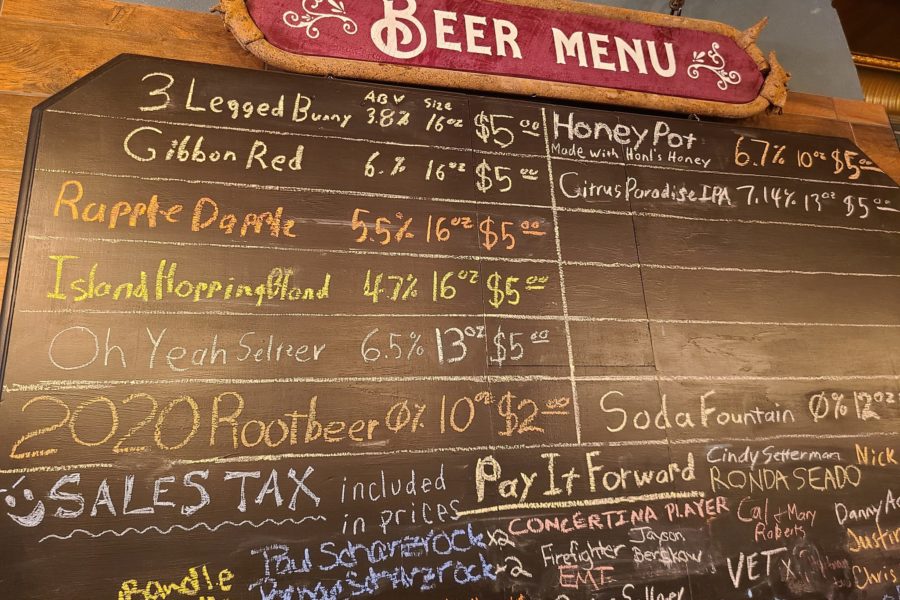 BEER MENU
ABV Size
3 Legged Bunny 3.8% 16oz $5.00
Gibbon Red 6.% 16oz $5.00
Rapple Dapple 5.5% 16oz $5.00
Island Hopping Blond 4.7% 16oz $5.00
Oh Yeah Seltzer 6.5% 13oz $5.00
2020 Rootbeer 0% 10oz $2.00
Honey Pot 6.7% 10oz $5.00
Made with Hont's Honey
Citrus Paradise IPA 7.14% 13oz $5.00
Soda Fountain 0% 12oz
SALES TAX included
in prices
Pay It Forward
CONCERTINA PLAYER
Paul Schanzrock x2
Schanzrock x2
Firefighter
EMT
Jayson
Berskow
Cindy Setterman
RONDA SEADO
Cal + Mary
Roberts
VET x
Nick
Danny
Chris